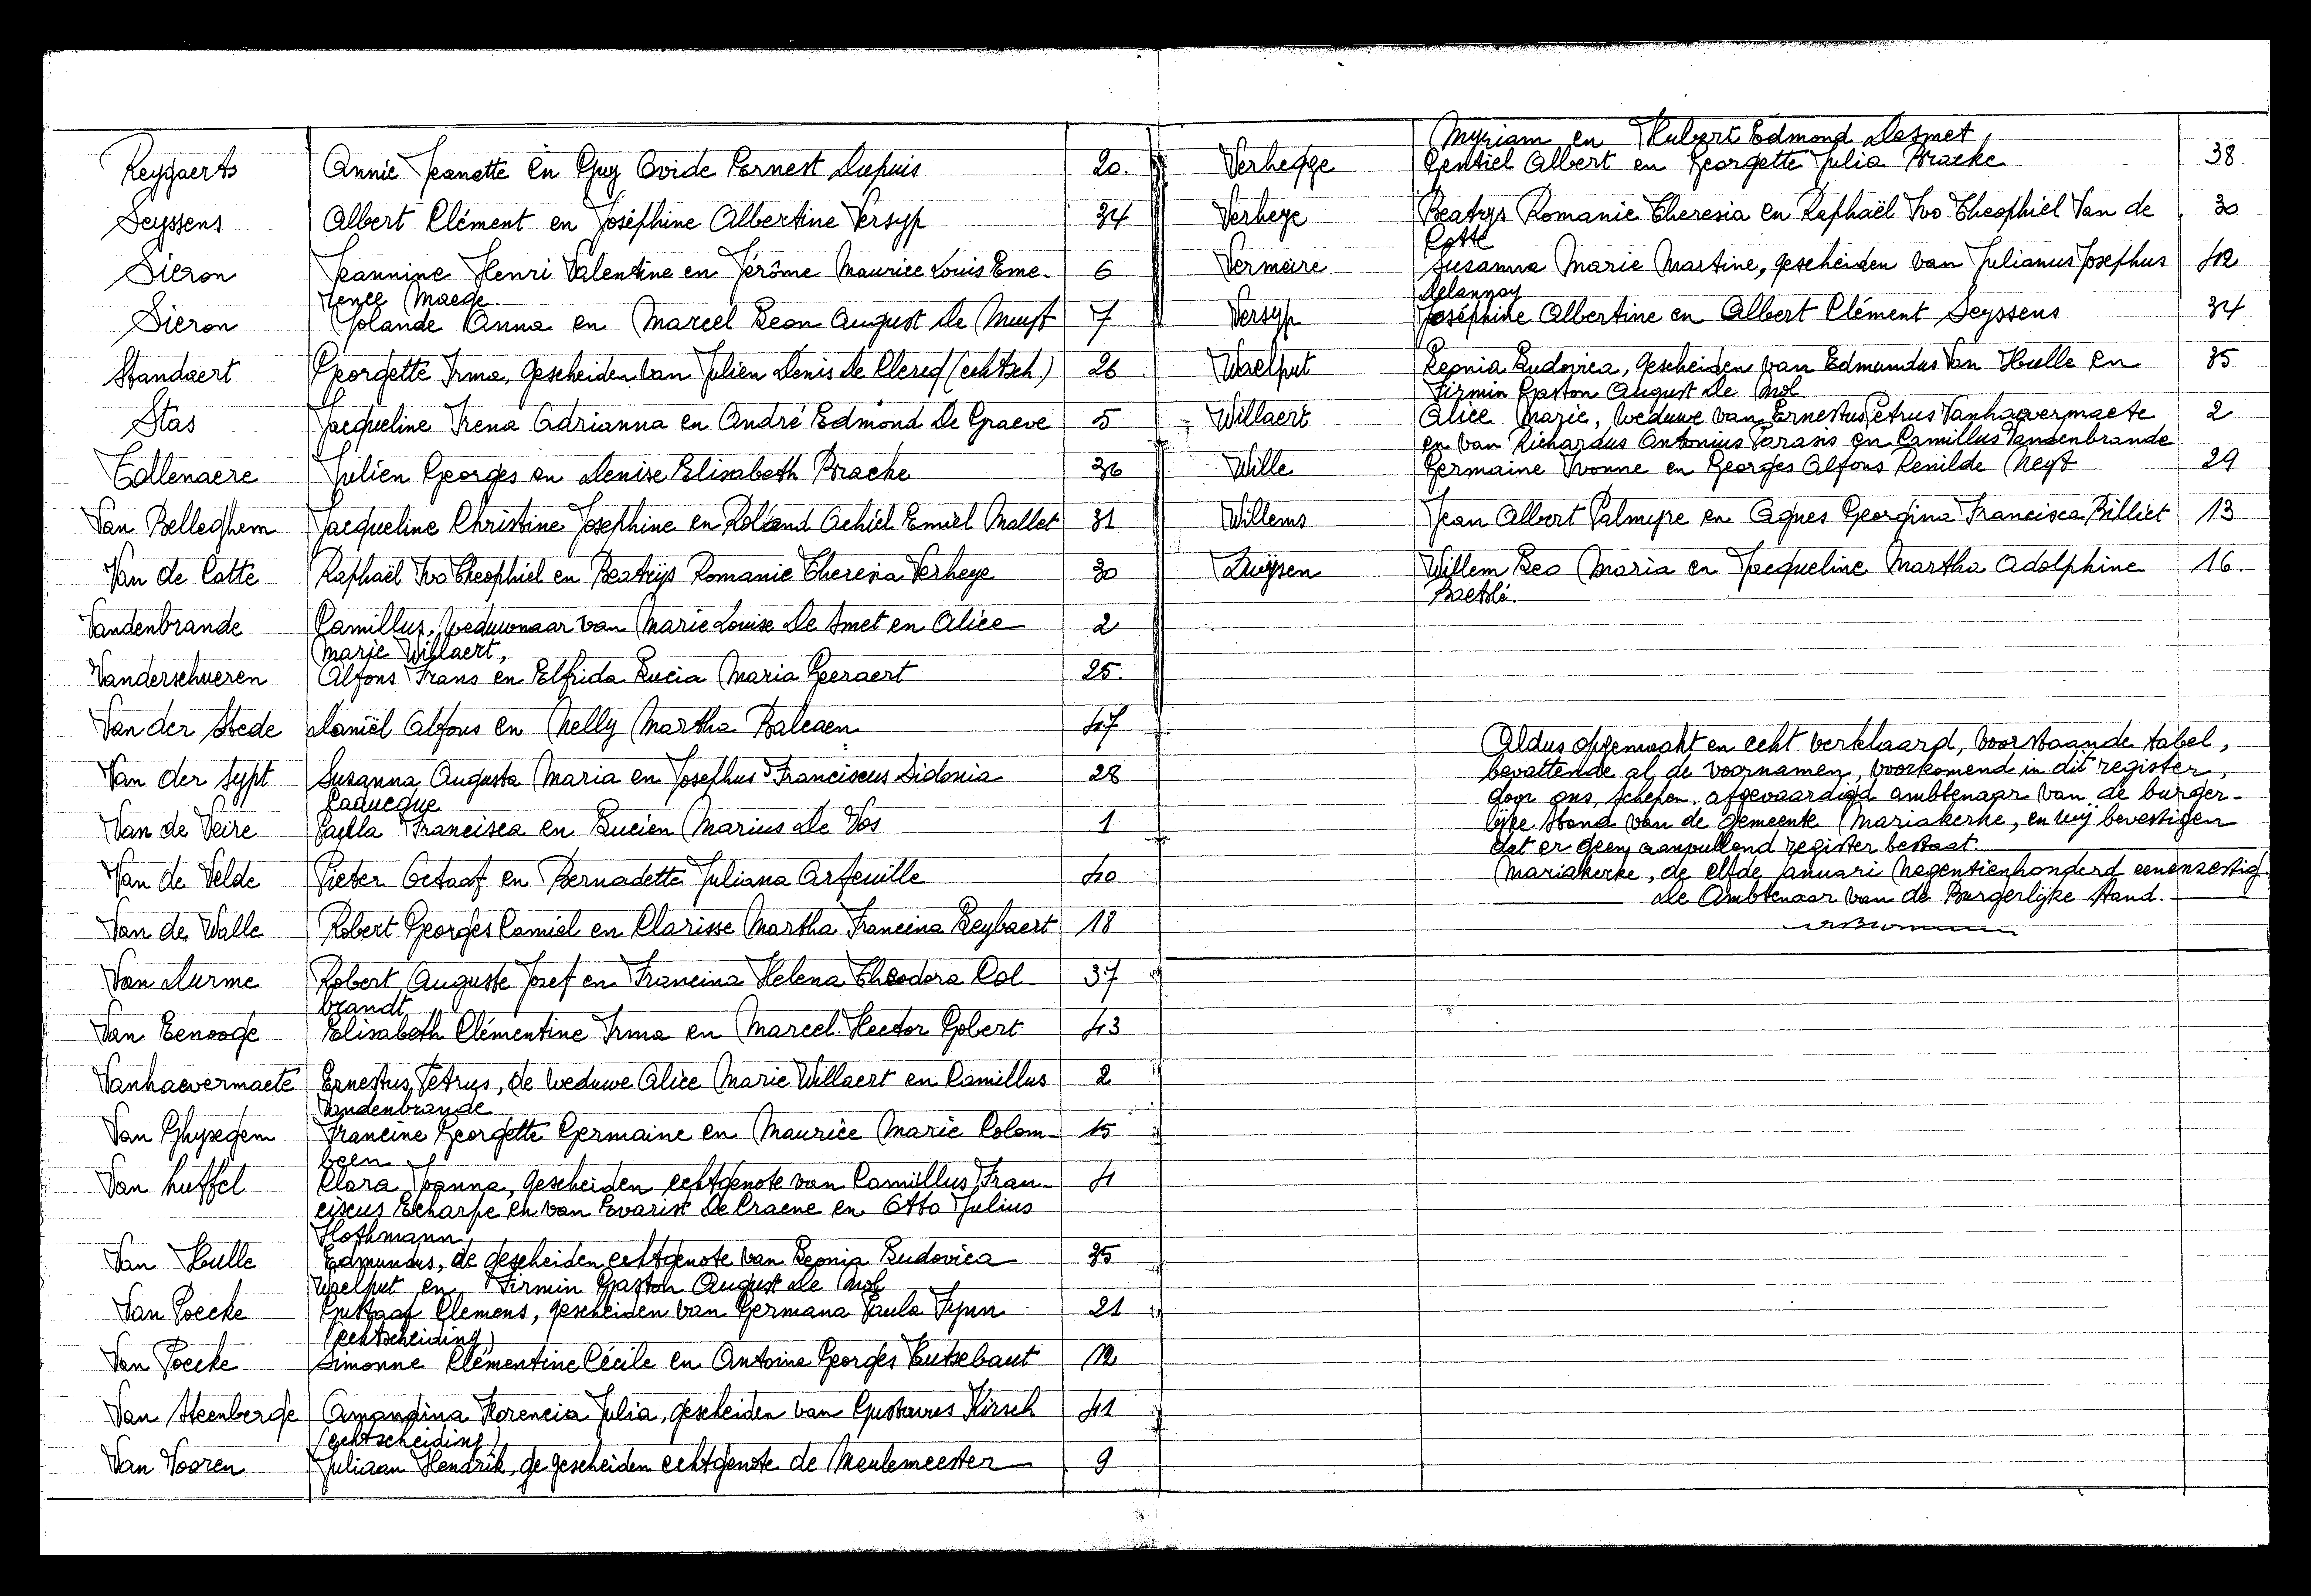 Reygaerts Annie Jeanette en Guy Ovide Ernest Dupuis 20.
Seyssens Albert Clément en Joséphine Albertine Versyp 34
Sieron Jeannine Henri Valentine en Jérôme Maurice Louis Eme- 6
rence Maege.
Sieron Yolande Anna en Marcel Leon August De Muyt 7
Standaert Georgette Irma, gescheiden van Julien Denis De Clercq (echtsch) 26
Stas Jacqueline Irena Adrianna en André Edmond De Graeve 5
Tollenaere Julien Georges en Denise Elisabeth Bracke 36
Van Belleghem Jacqueline Christine Josephine en Roland Achiel Emiel Mallet 31
Van de Catte Raphaël Ivo Theophiel en Beatrijs Romanie Theresia Verheye 30
Vandenbrande Camillus, weduwnaar van Marie Louise De Smet en Alice 2
Marie Willaert,
Vanderschueren Alfons Frans en Elfrida Lucia Maria Geeraert 25.
Van der Stede Daniël Alfons en Nelly Martha Balcaen 47
Van der Sypt Suzanna Augusta Maria en Josephus Franciscus Sidonia 28
Caqueque
Van de Veire Paula Francisca en Lucien Marius De Vos 1
Van de Velde Pieter Octaaf en Bernadette Juliana Arfeuille 40
Van de Walle Robert Georges Camiel en Clarisse Martha Francina Leybaert 18
Van Durme Robert Auguste Jozef en Francina Helena Theodora Col- 37
brandt
Van Eenooge Elisabeth Clémentine Irma en Marcel Hector Gobert 43
Vanhaevermaete Ernestus Petrus, de weduwe Alice Marie Willaert en Camillus 2
Vandenbrande
Van Ghysegem Francine Georgette Germaine en Maurice Marie Colom- 15
been
Van huffel Clara Joanna, gescheiden echtgenote van Camillus Fran- 4
ciscus Echarpe en van Evarist De Craene en Otto Julius
Hothmann
Van Hulle Edmundus, de gescheiden echtgenote van Leonia Ludovica 35
Waelput en Firmin Gaston August De Mol
Van Poecke Gustaaf Clemens, gescheiden van Germana Paula Fynn 21
(echtscheiding)
Van Poecke Simonne Clémentine Cécile en Antoine Georges Cutsebaut 12
Van Steenberge Amandina Florencia Julia, gescheiden van Gustavus Kirsch 41
(echtscheiding)
Van Vooren Juliaan Hendrik, de gescheiden echtgenote de Meulemeester 9
Myriam en Hubert Edmond Desmet,
Verhegge Gentiel Albert en Georgette Julia Bracke 38
Verheye Beatrys Romanie Theresia en Raphaël Ivo Theophiel Van de 30
Catte
Vermeire Susanna Marie Martine, gescheiden van Julianus Josephus 42
Delannoy
Versyp Joséphine Albertine en Albert Clément Seyssens 34
Waelput Leonia Ludovica, gescheiden van Edmundus Van Hulle en 35
Firmin Gaston August De Mol
Willaert Alice Marie, weduwe van Ernestus Petrus Vanhaevermaete 2
en van Richardus Antonius Parasis en Camillus Vandenbrande
Wille Germaine Yvonne en Georges Alfons Renilde Neyt 29
Willems Jean Albert Palmyre en Agnes Georgina Francisca Billiet 13
Zuijsen Willem Leo Maria en Jacqueline Martha Adolphine 16.
Baetslé.
Aldus opgemaakt en echt verklaard, voorstaande tabel,
bevattende al de voornamen, voorkomend in dit register,
door ons, schepen, afgevaardigd ambtenaar van de burger-
lijke stand van de gemeente Mariakerke, en wij bevestigen
dat er geen aanvullend register bestaat.
Mariakerke, de elfde januari negentienhonderd eenenzestig.
De Ambtenaar van de Burgerlijke Stand.